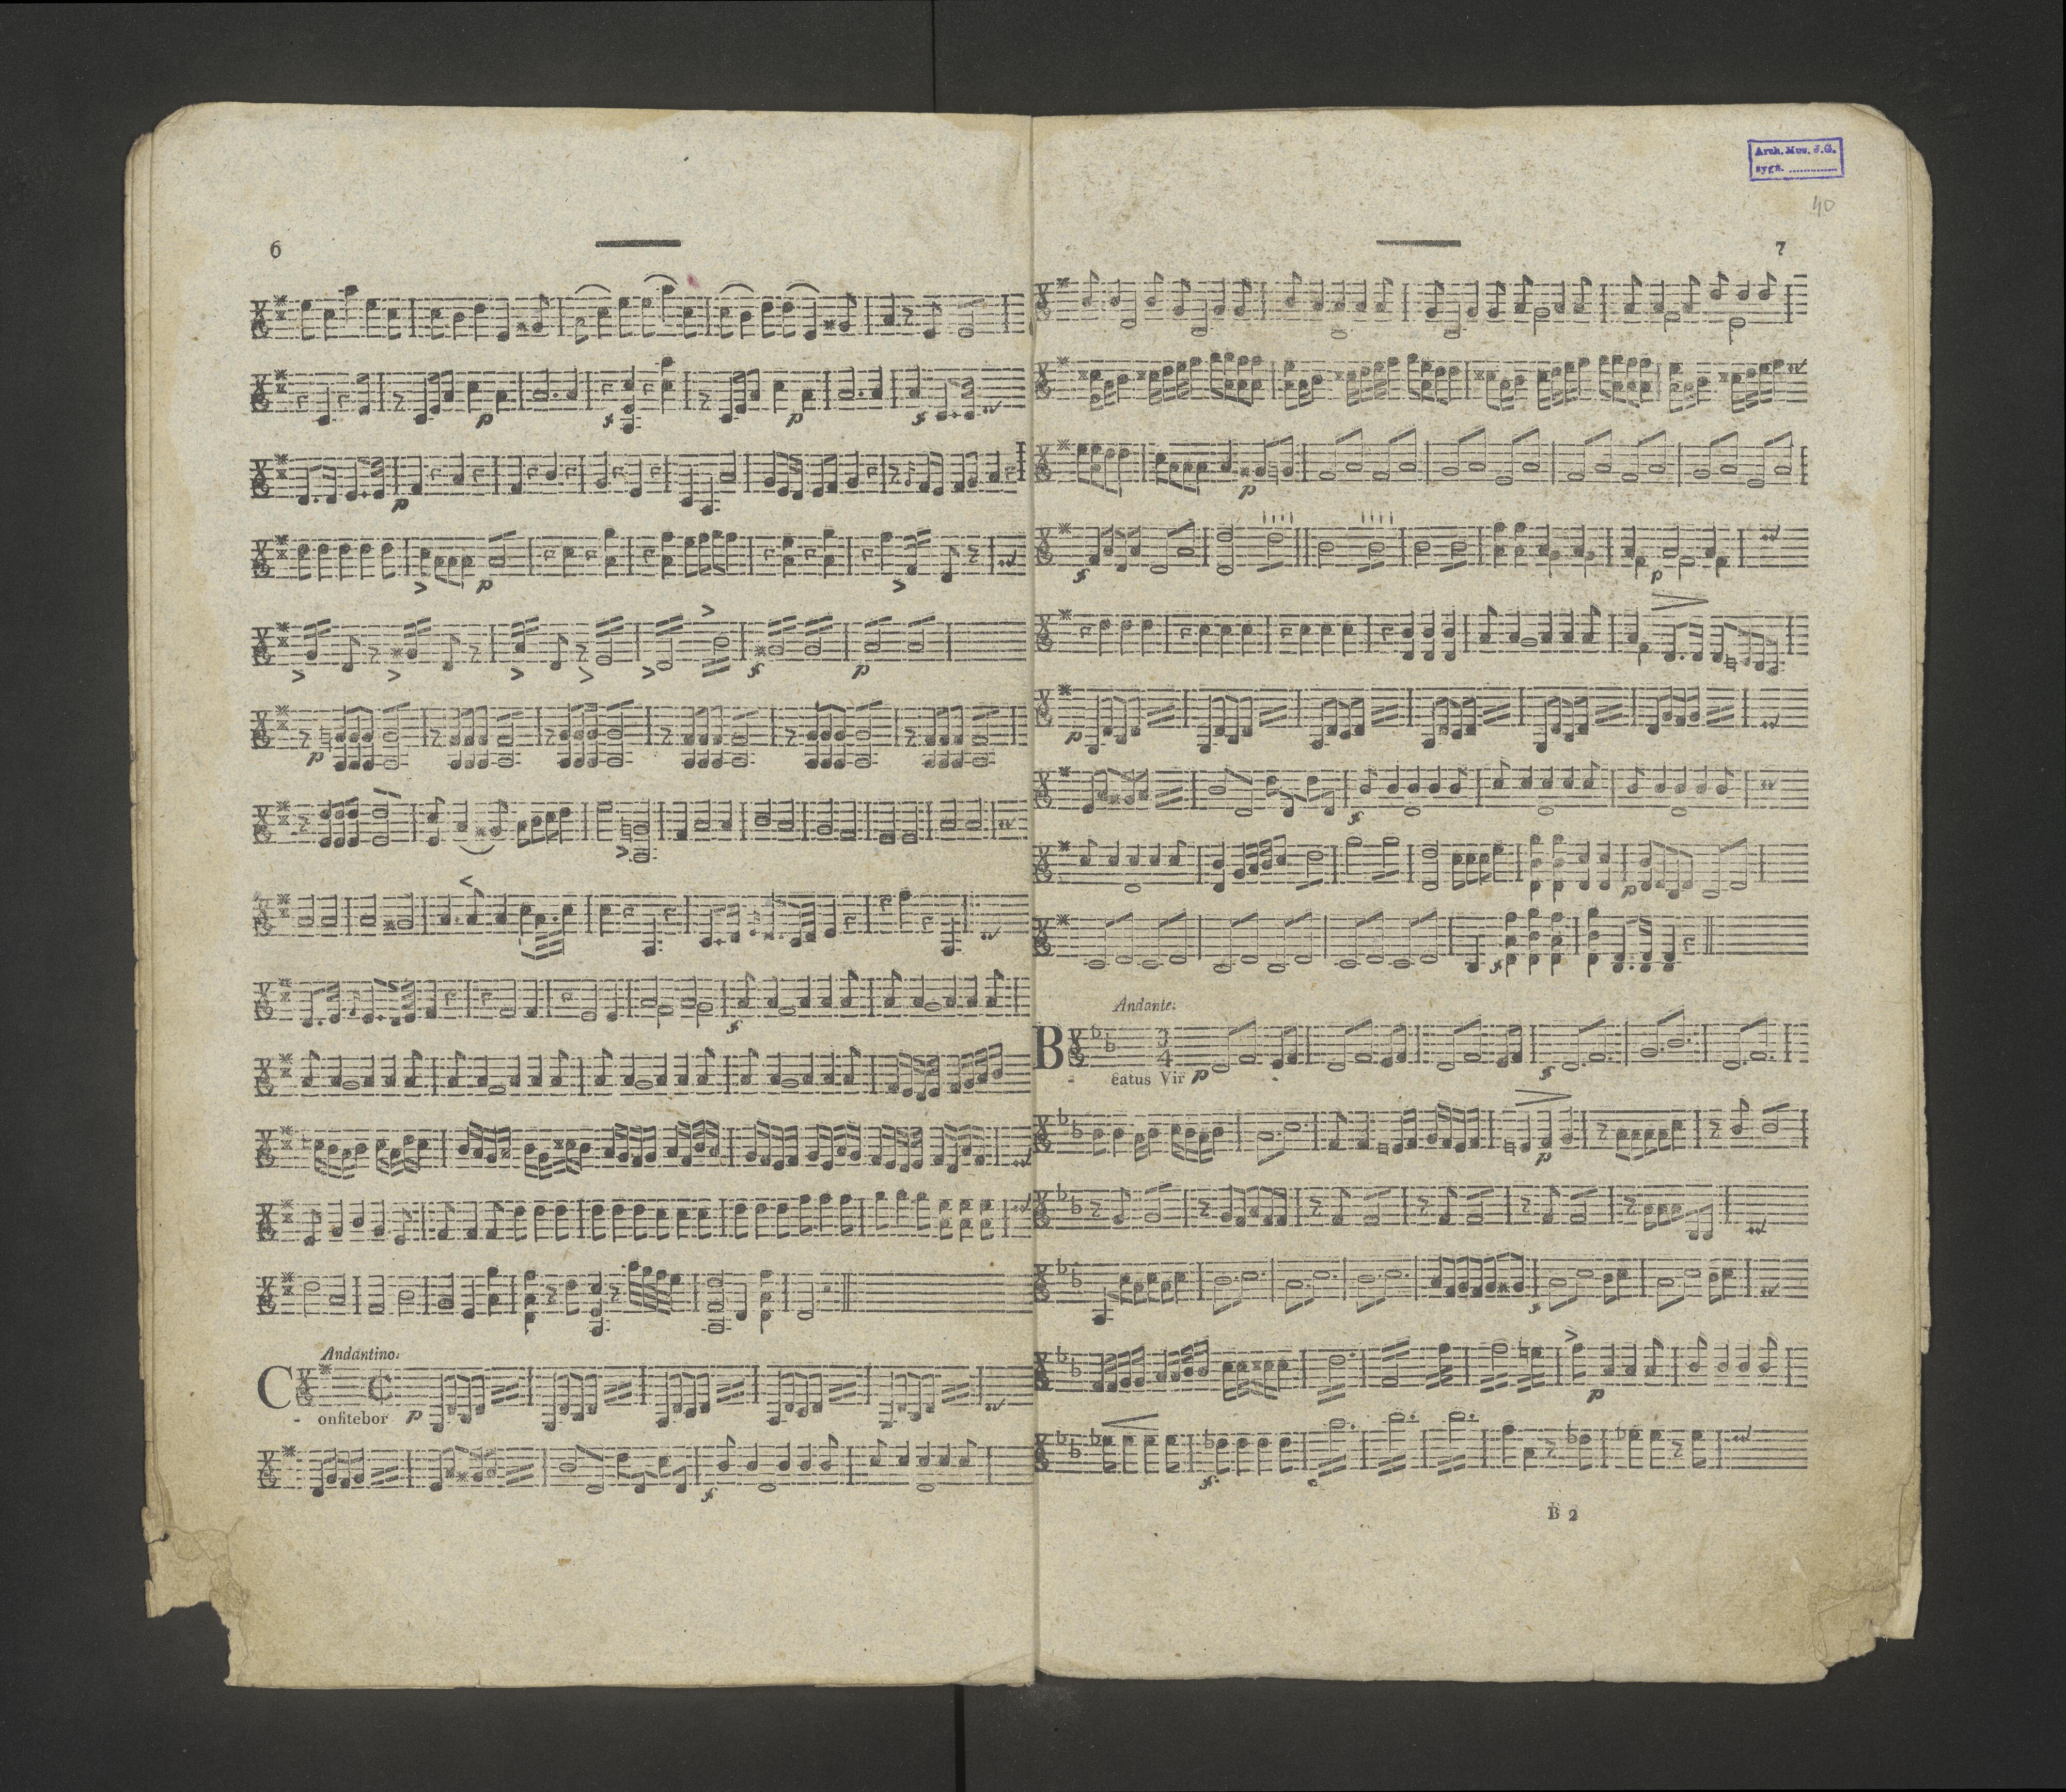 6
Andantino.
Confitebor
Arch. Mus. J.G.
sygn. ..............
40
7
Andante.
Beatus Vir
B 2